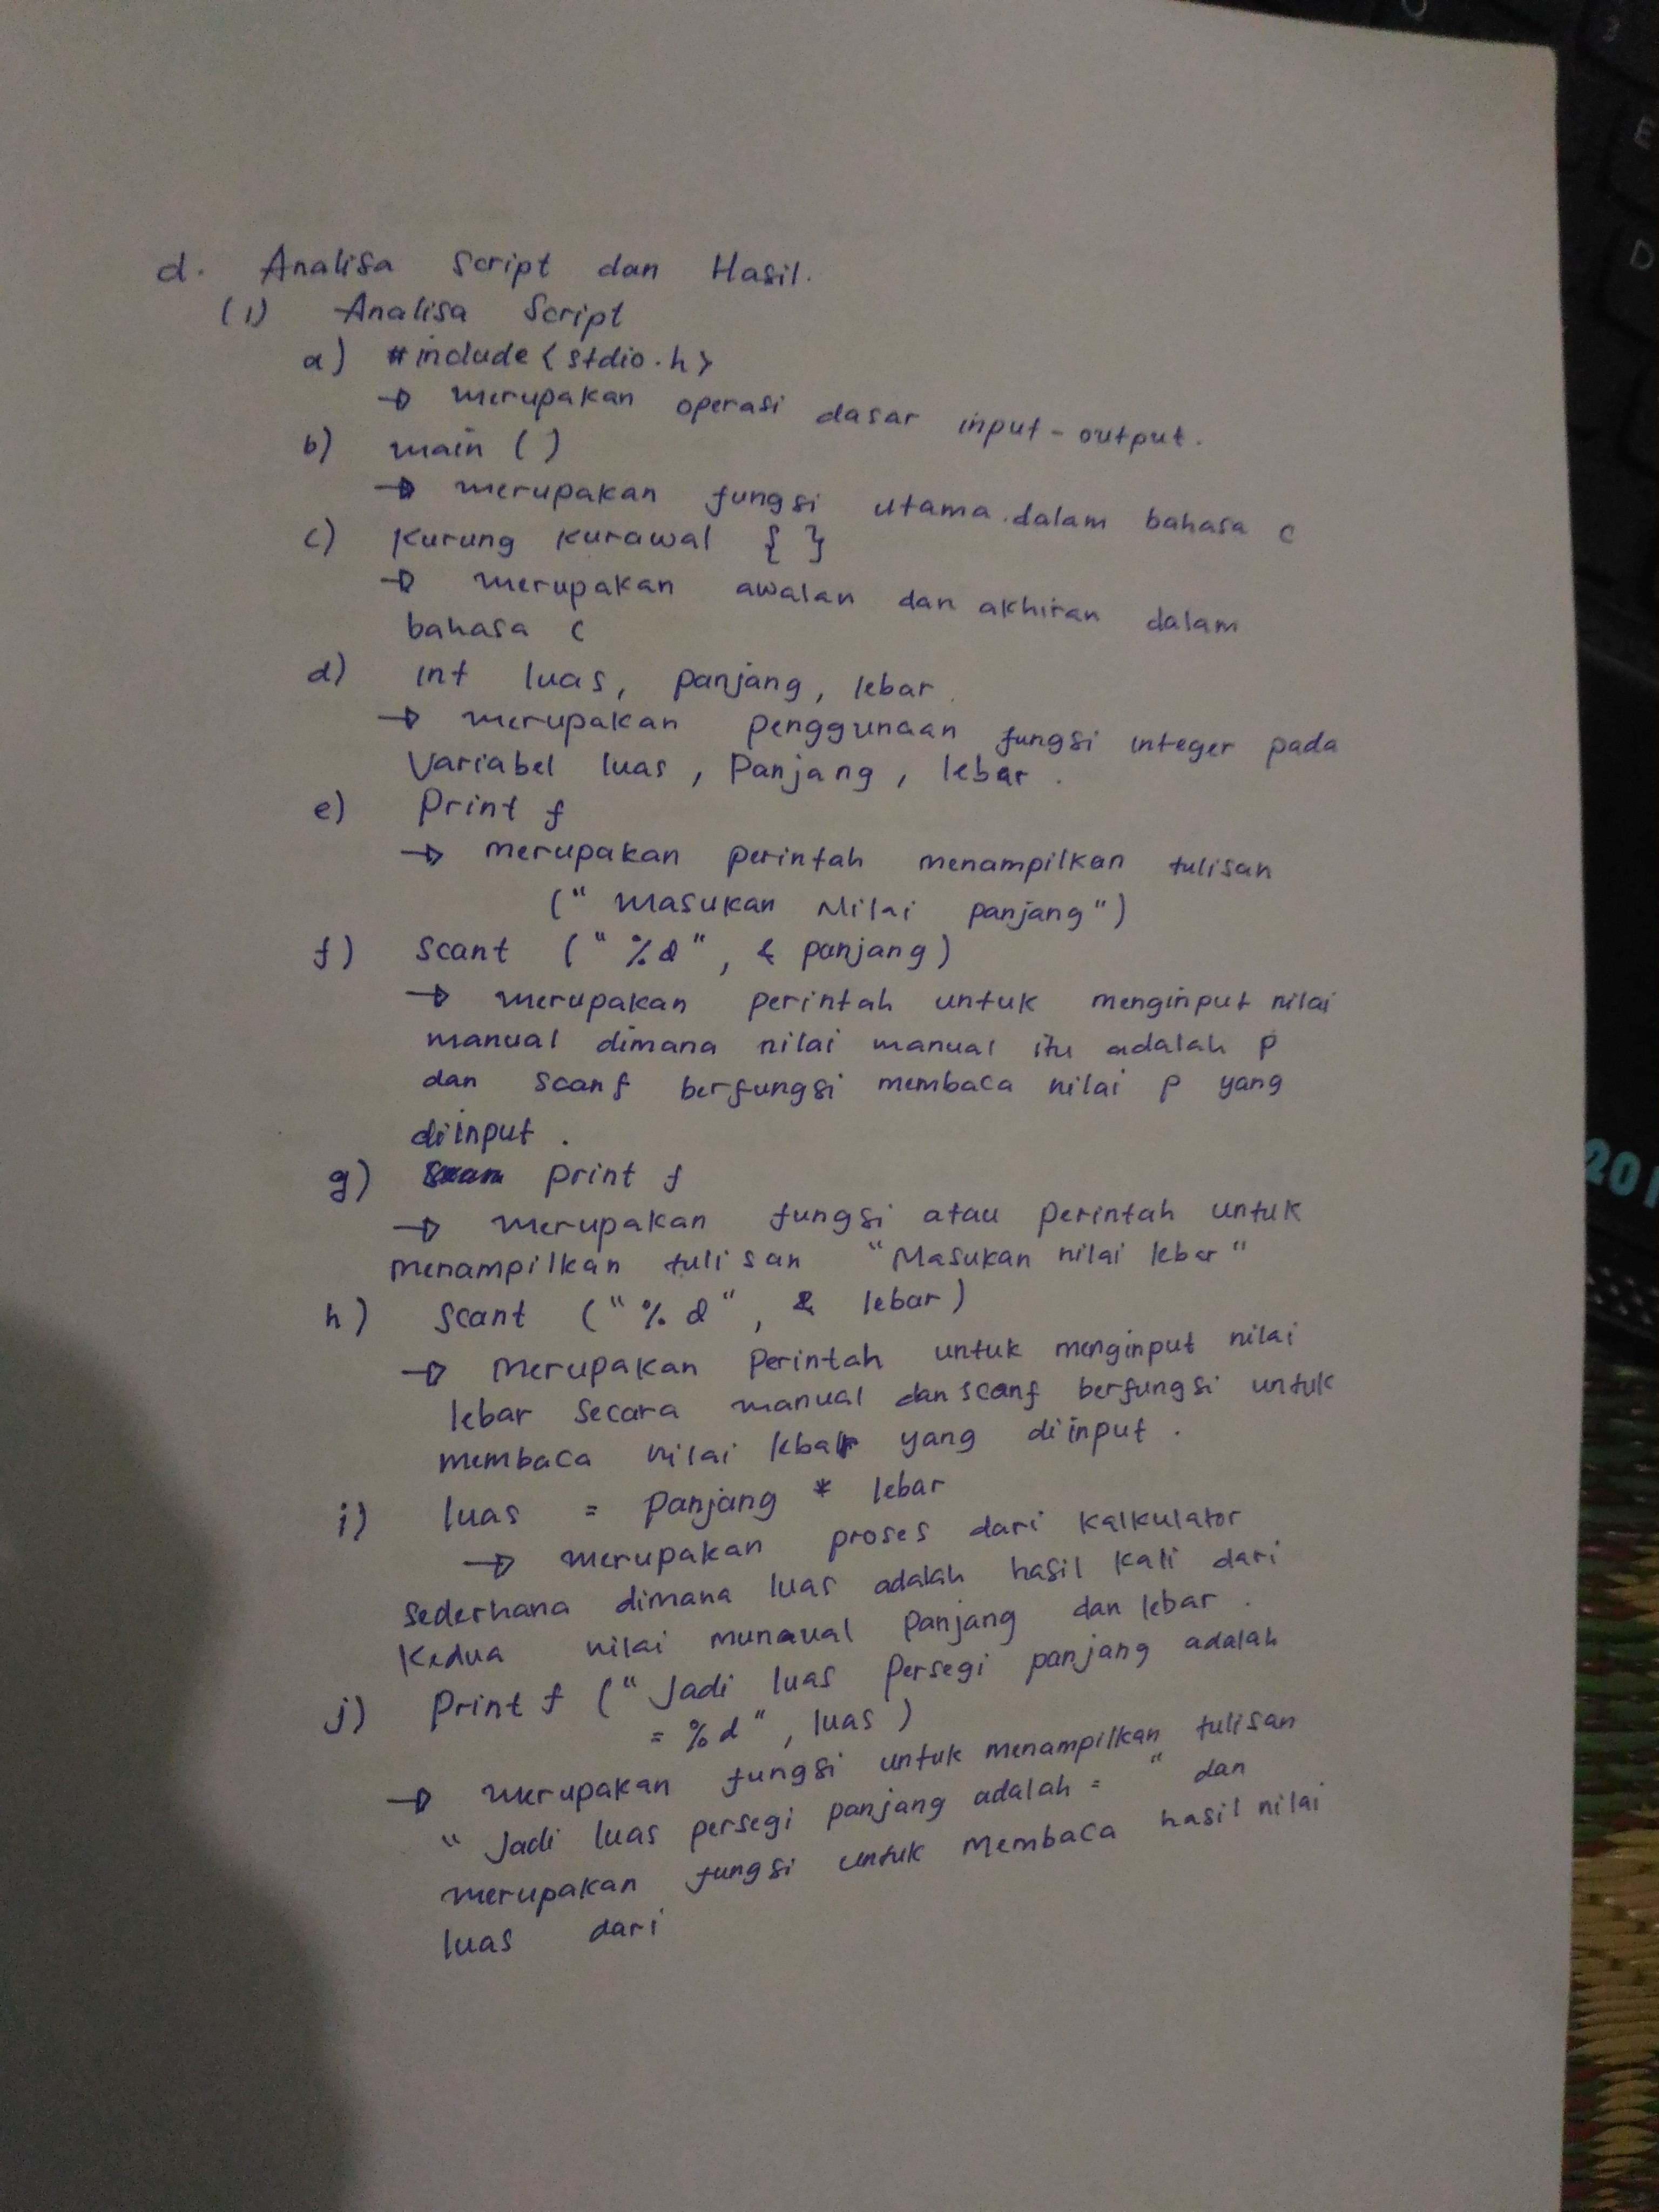 d. Analisa Script dan Hasil.
(1) Analisa Script
a) #include <stdio.h>
→ merupakan operasi dasar input-output.
b) main ( )
→ merupakan fungsi utama dalam bahasa C
c) Kurung Kurawal { }
→ merupakan awalan dan akhiran dalam
bahasa C
d) int luas, panjang, lebar.
→ merupakan penggunaan fungsi integer pada
Variabel luas, Panjang, lebar.
e) Print f
→ merupakan perintah menampilkan tulisan
(" Masukan Nilai panjang")
f) Scant ("%d", & panjang)
→ merupakan perintah untuk menginput nilai
manual dimana nilai manual itu adalah p
dan scanf berfungsi membaca nilai p yang
diinput.
g) print f
→ merupakan fungsi atau perintah untuk
menampilkan tulisan "Masukan nilai lebar"
h) Scant ("%d", & lebar)
→ merupakan Perintah untuk menginput nilai
lebar secara manual dan scanf berfungsi untuk
membaca nilai lebar yang diinput.
i) luas = Panjang * lebar
→ merupakan proses dari kalkulator
sederhana dimana luas adalah hasil kali dari
Kedua nilai munaual Panjang dan lebar.
j) Print f ("Jadi luas Persegi panjang adalah
= %d", luas)
→ merupakan fungsi untuk menampilkan tulisan
" Jadi luas persegi panjang adalah = " dan
merupakan fungsi untuk Membaca hasil nilai
luas dari
E
D
3
201